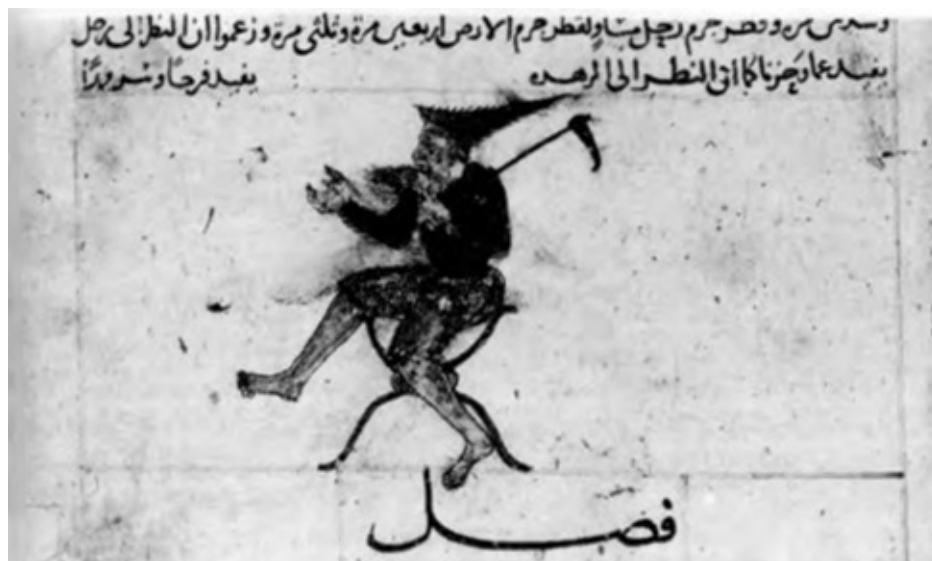 وسدس مرة وقطر جرم زحل مساو لقطر جرم الارض اربعين مرة وثلثى مرة وزعموا ان النظر الى زحل
يفيد غما وحزنا كما ان النظر الى الزهره يفيد فرحا وسرورا
فصل